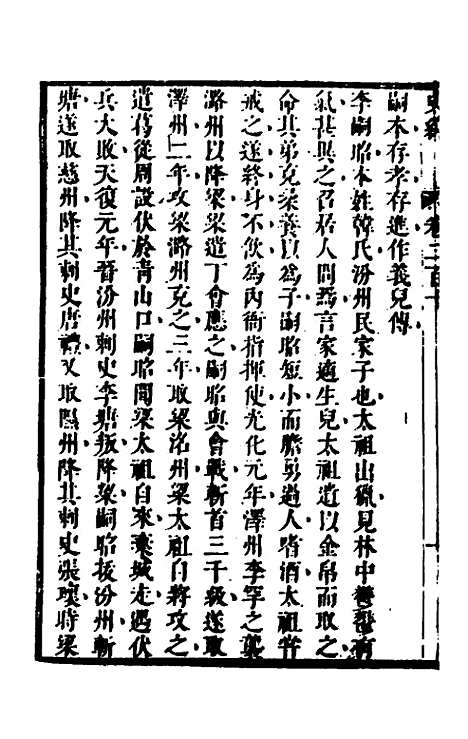 嗣本存孝存進作義兒傳
李嗣昭本姓韓氏汾州民家子也太祖出獵見林中鬱鬱有
氣甚異之召居人問焉言家適生兒太祖遺以金帛而取之
命其弟克柔養以爲子嗣昭短小而膽勇過人嗜酒太祖嘗
戒之遂終身不飲爲內衙指揮使光化元年澤州李罕之襲
潞州以降梁梁遣丁會應之嗣昭與會戰斬首三千級遂取
澤州二年攻梁潞州克之三年取梁洺州梁太祖自將攻之
遣葛從周設伏於靑山口嗣昭聞梁太祖自來棄城走遇伏
兵大敗天復元年晉汾州刺史李瑭叛降梁嗣昭援汾州斬
瑭遂取慈州降其刺史唐禮又取隰州降其刺史張瓌時梁